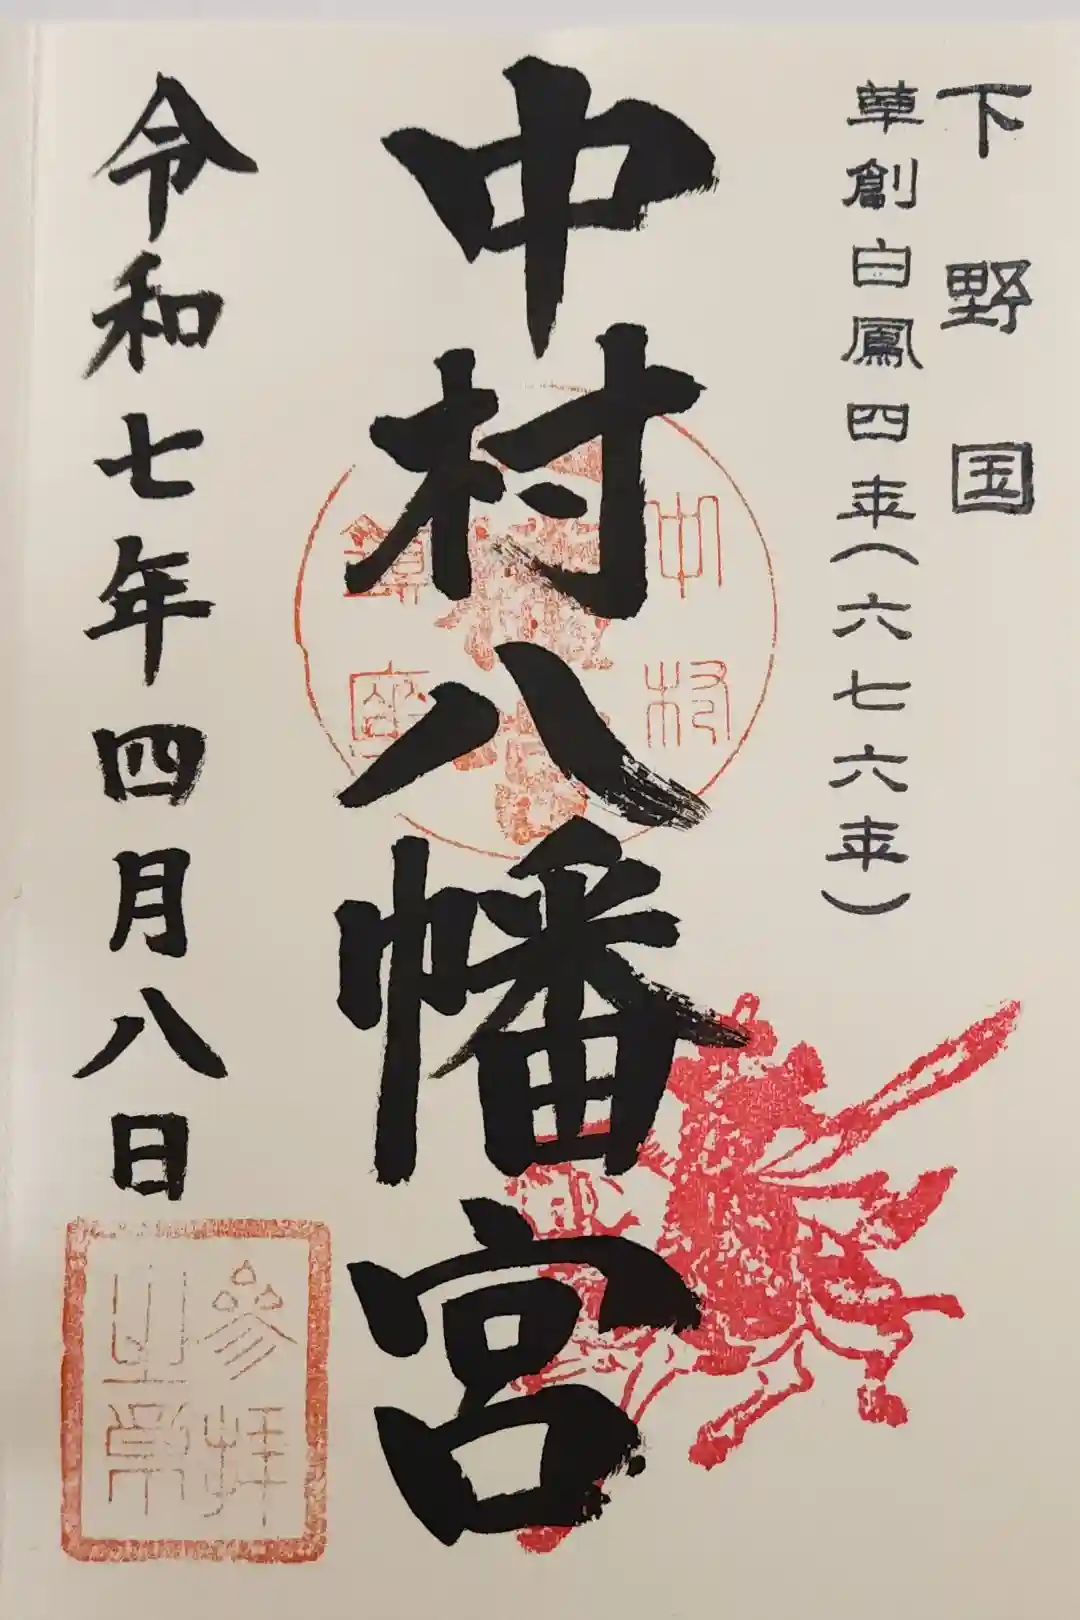 下野国
草創白鳳四年(六七六年)
中村八幡宮
中村
鎮座
令和七年四月八日
参拝
之章